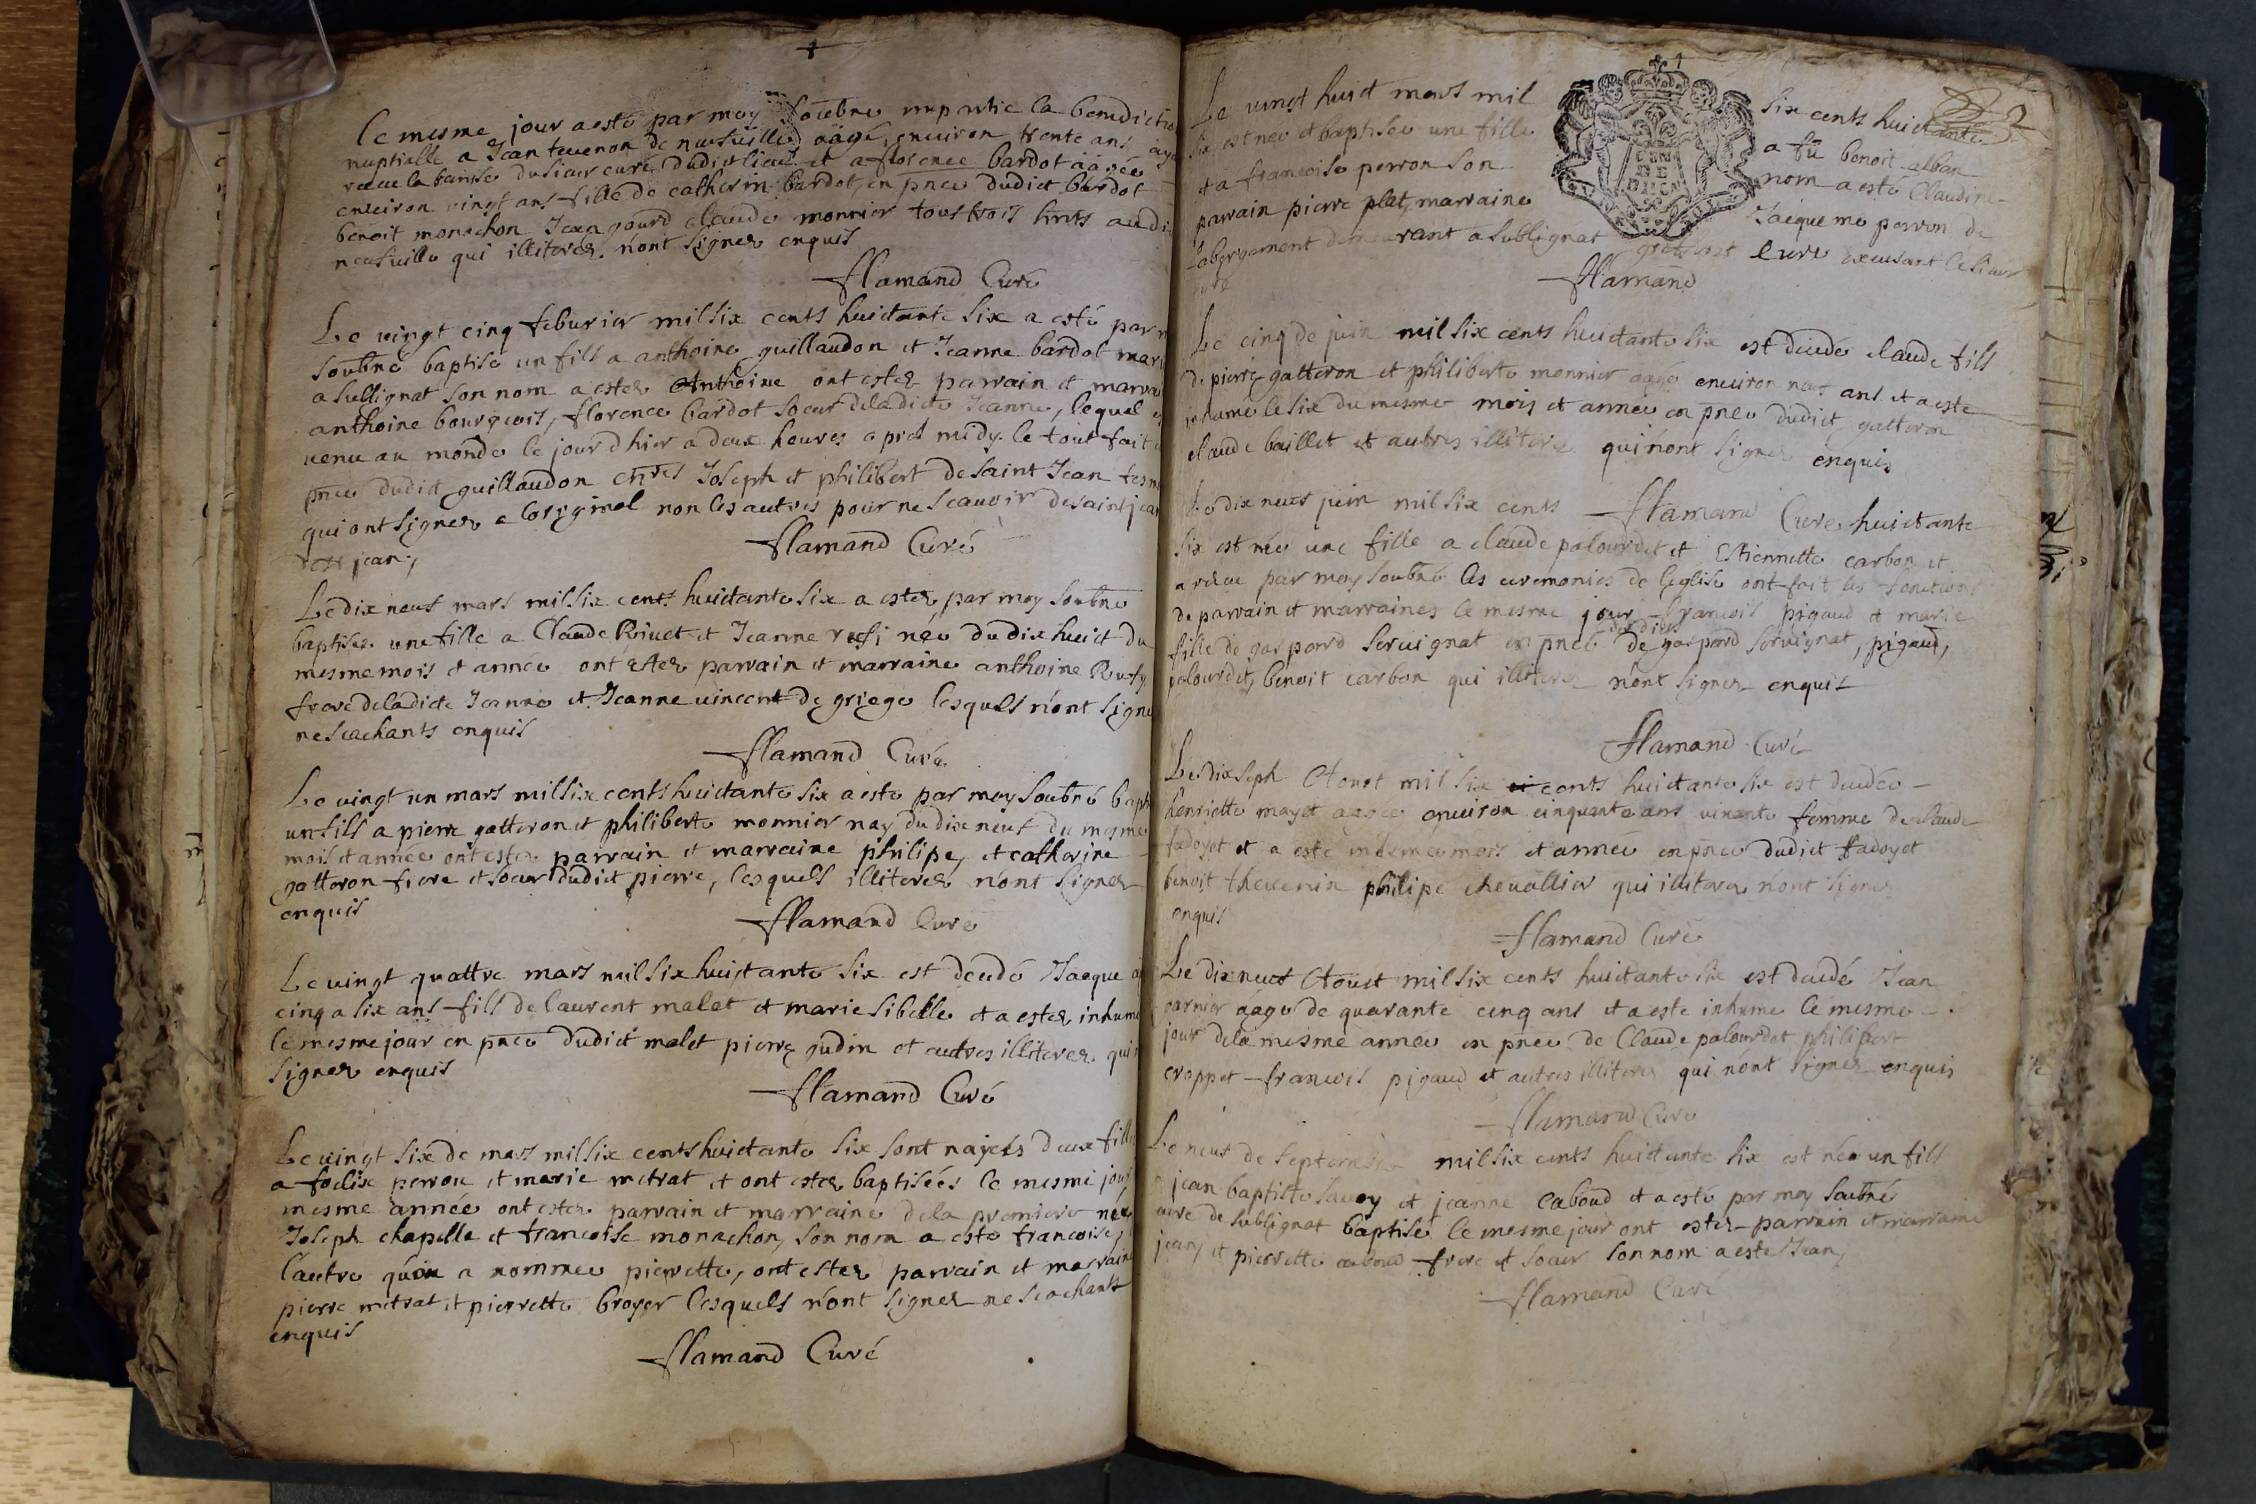 Ce mesme jour a esté par moy soubné impartie la benediction
nuptialle a Jean tevenon de neufuille aagé environ trente ans aya
receu la remise du sieur curé dudict lieu et a florence bardot aagée
environ vingt ans fille de catherin bardot, en pnce dudict bardot
benoit monachon Jean gourd claude monnier tous trois hnts audi
neufuille qui illiterez n'ont signer enquis
flamand Curé
Le vingt cinq feburier mil six cents huictante six a esté par m
soubné baptisé un fils a anthoine guillaudon et Jeanne bardot mari
a sullignat son nom a ester Anthoine ont ester parrain et marra
anthoine bourgeois, florence bardot soeur deladicte Jeanne, lequel e
venu au monde le jour d'hier a deux heures apres midy. le tout fait
pnce dudict guillaudon Joseph et philibert de saint Jean tesm
qui ont signer a l'original non les autres pour ne scavoir desaintjean
jean
Flamand Curé
Le dix neuf mars mil six cents huictante six a ester par moy soubné
baptisée une fille a Claude Rivet et Jeanne née du dix huict du
mesme mois et année ont ester parrain et marraine anthoine
frere deladicte Jeanne et Jeanne vincent de griege lesquels n'ont signe
ne scachants enquis
flamand Curé
Le vingt un mars mil six cents huictante six a esté par moy soubné bapt
un fils a pierre gatteron et philiberte monnier nay du dix neuf du mesme
mois et année ont ester parrain et marraine philipe, et catherine
gatteron frere et soeur dudict pierre, lesquels illiterez n'ont signer
enquis
flamand Curé
Le vingt quattre mars mil six huictante six est decedé Jacque
cinq a six ans fils de laurent malet et marie sibelle et a ester inhumé
le mesme jour en pnce dudict malet pierre gudin et autres illiterez qui n
signer enquis
flamand Curé
Le vingt six de mars mil six cents huictante six sont nayes deux fille
a foelix perron et marie mitrat et ont ester baptisées le mesme jour
mesme année ont ester parrain et marraine dela premiere née
Joseph chapelle et francoise monachon, son nom a esté francoise,
l'autre qu'on a nommée pierrette, ont ester parrain et marraine
pierre mitrat, et pierrette broyer lesquels n'ont signer ne scachants
enquis
flamand Curé
Le vingt huict mars mil six cents huictante
six est née et baptisée une fille a fû benoit alban
et a francoise perron son nom a esté Claudine
parrain pierre plat, marraine Jacqueme perron de
l'abergement demeurant a sublignat curé excusant le sieur
curé
flamand
Le cinq de juin mil six cents huictante six est decedé claude fils
de pierre gatteron et philiberte monnier aagé environ neuf ans et a esté
inhumé le six du mesme mois et année en pnce dudict gatteron
claude baillet et autres illiterez qui n'ont signer enquis
Flamand Curé
Le dix neuf juin mil six cents huictante
six est née une fille a claude palourdet et Estiennette carbon et
a receu par moy soubné les ceremonies de l'eglise ont fait les fonctions
de parrain et marraines le mesme jour francois pigaud et marie
fille de gaspard servignat en pnce desdicts de gaspard servignat, pigaud,
palourdet, benoit carbon qui illiterez n'ont signer enquis
flamand Curé
Le dix seph Aoust mil six cents huictante six est decedée
henriette mayet aagée environ cinquante ans vivante femme de claude
fadoyet et a esté mesme mois et année en pnce dudict fadoyet
benoit thevenin philipe chevallier qui illiterez n'ont signer
enquis
flamand Curé
Le dix neuf Aoust mil six cents huictante six est decedé Jean
garnier aagé de quarante cinq ans et a esté inhumé le mesme
jour dela mesme année en pnce de Claude palourdet philibert
croppet francois pigaud et autres illiterez qui n'ont signer enquis
flamand Curé
Le neuf de septembre mil six cents huictante six est née un fils
a jean baptiste savoy et jeanne caboud et a esté par moy soubné
curé de sublignat baptisé le mesme jour ont ester parrain et marraine
jean, et pierrette caboud frere et soeur son nom a esté Jean,
flamand Curé